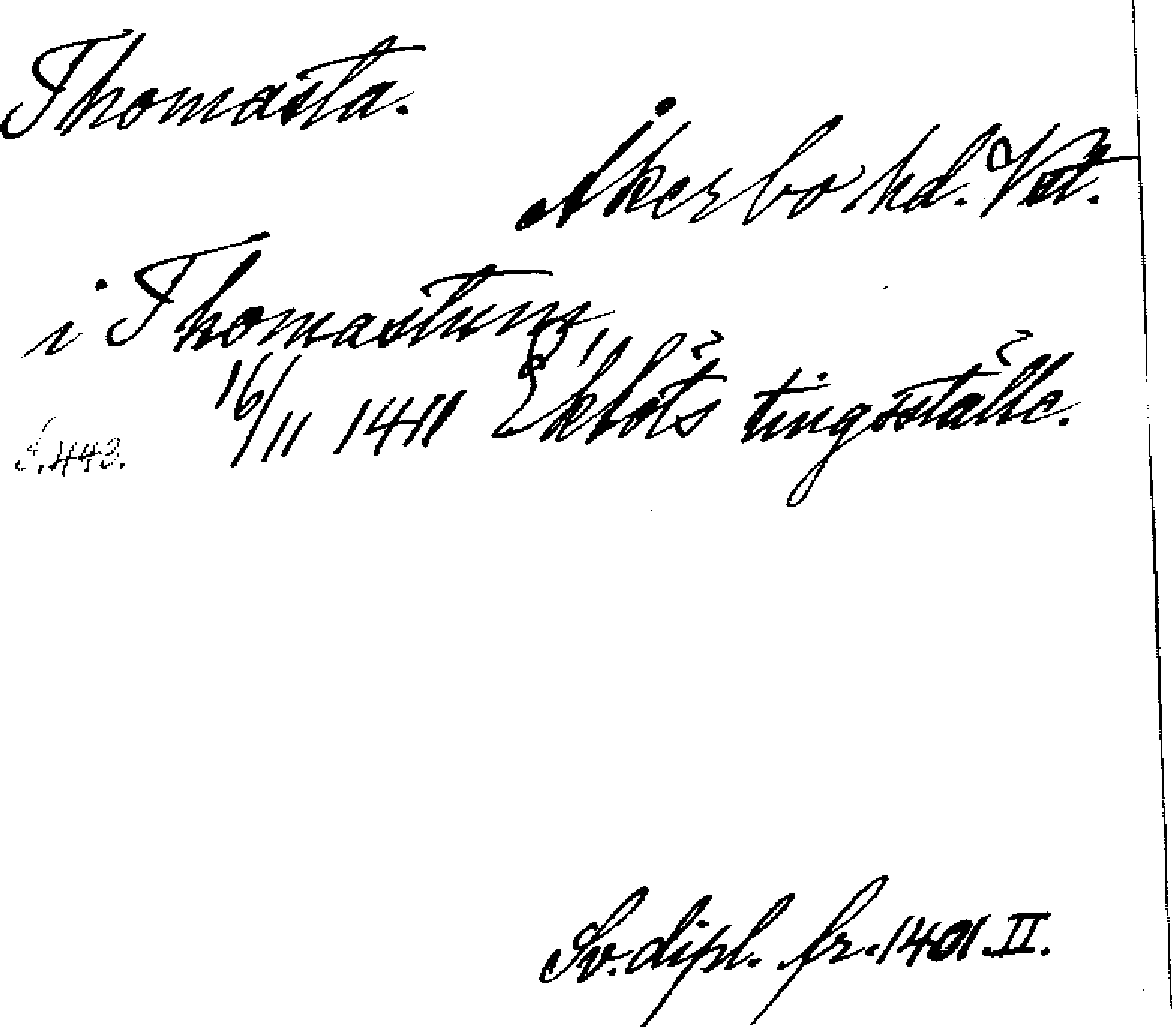 Thomasta.
Åkerbo hd. Vstm.
i Thomastum
16/11 1411 Eklots tingsställe.
S. 443.
Sv. dipl. fr. 1401. II.